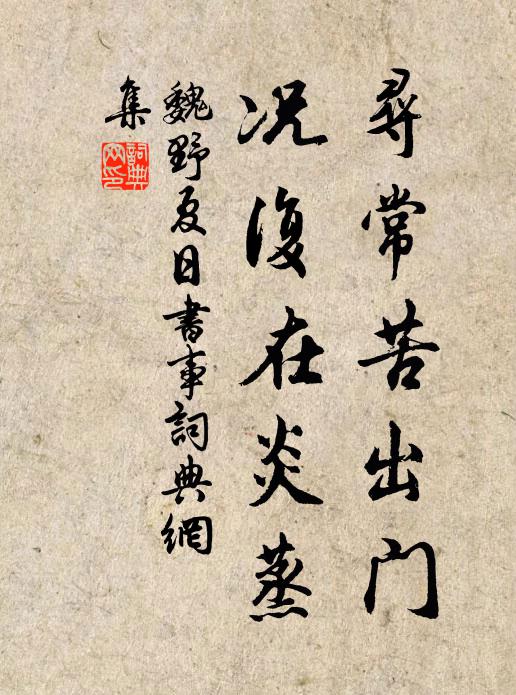 尋常苦出门
况復在炎蒸
魏野夏日書事詞典網
集
詞典
网印